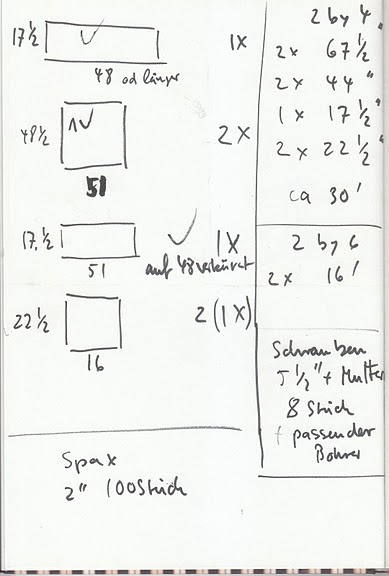 17 ½ 1x
48 od länger
48 ½ 1 2x
51
17,½ 1x
51 auf 48 verkürzt
22 ½ 2 (1x)
16
Spax
2" 100 Stück
2 by 4
2x 67 ½"
2x 44"
1x 17 ½"
2x 22 ½"
ca 30'
2 by 6
2x 16'
Schrauben
5 ½" + Mutter
8 Stück
+ passender
Bohrer